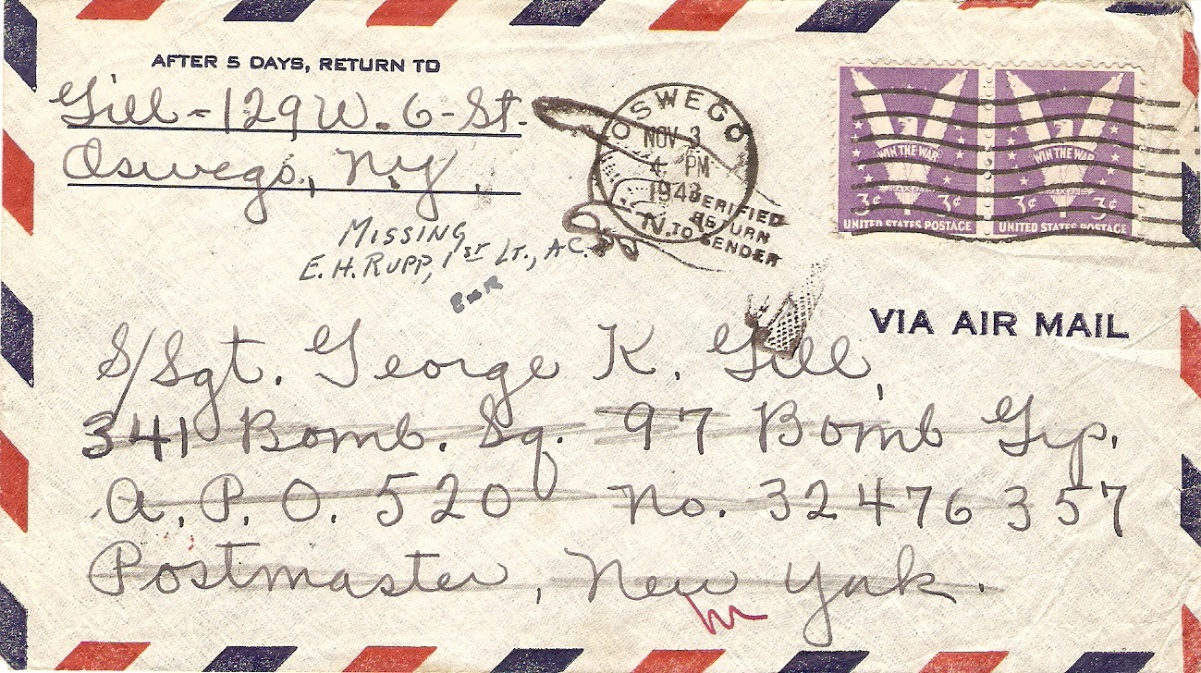 AFTER 5 DAYS, RETURN TO
Gill-129 W. 6-St.
Oswego, N.Y.
OSWEGO
NOV 3
4 PM
1943
N.Y.
VERIFIED
RETURN
TO SENDER
WIN THE WAR
WIN THE WAR
3¢ 3¢
3¢ 3¢
UNITED STATES POSTAGE
UNITED STATES POSTAGE
MISSING
E. H. RUPP, 1ST LT., AC.
EHR
VIA AIR MAIL
S/Sgt. George K. Gill,
341 Bomb. Sq. 97 Bomb Grp.
A.P.O. 520 No. 32476357
Postmaster, New York.